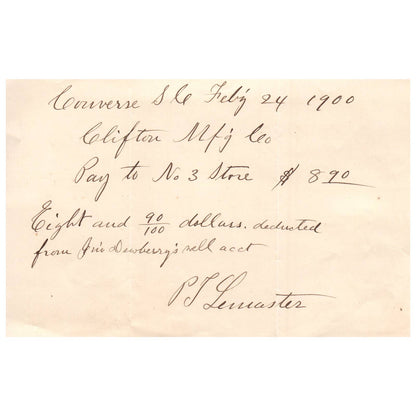 Converse S C Feb'y 24 1900
Clifton Mf'g Co
Pay to No 3 Store $ 8 90
Eight and 90/100 dollars. deducted
from Dewberry's acct
P T Lemaster